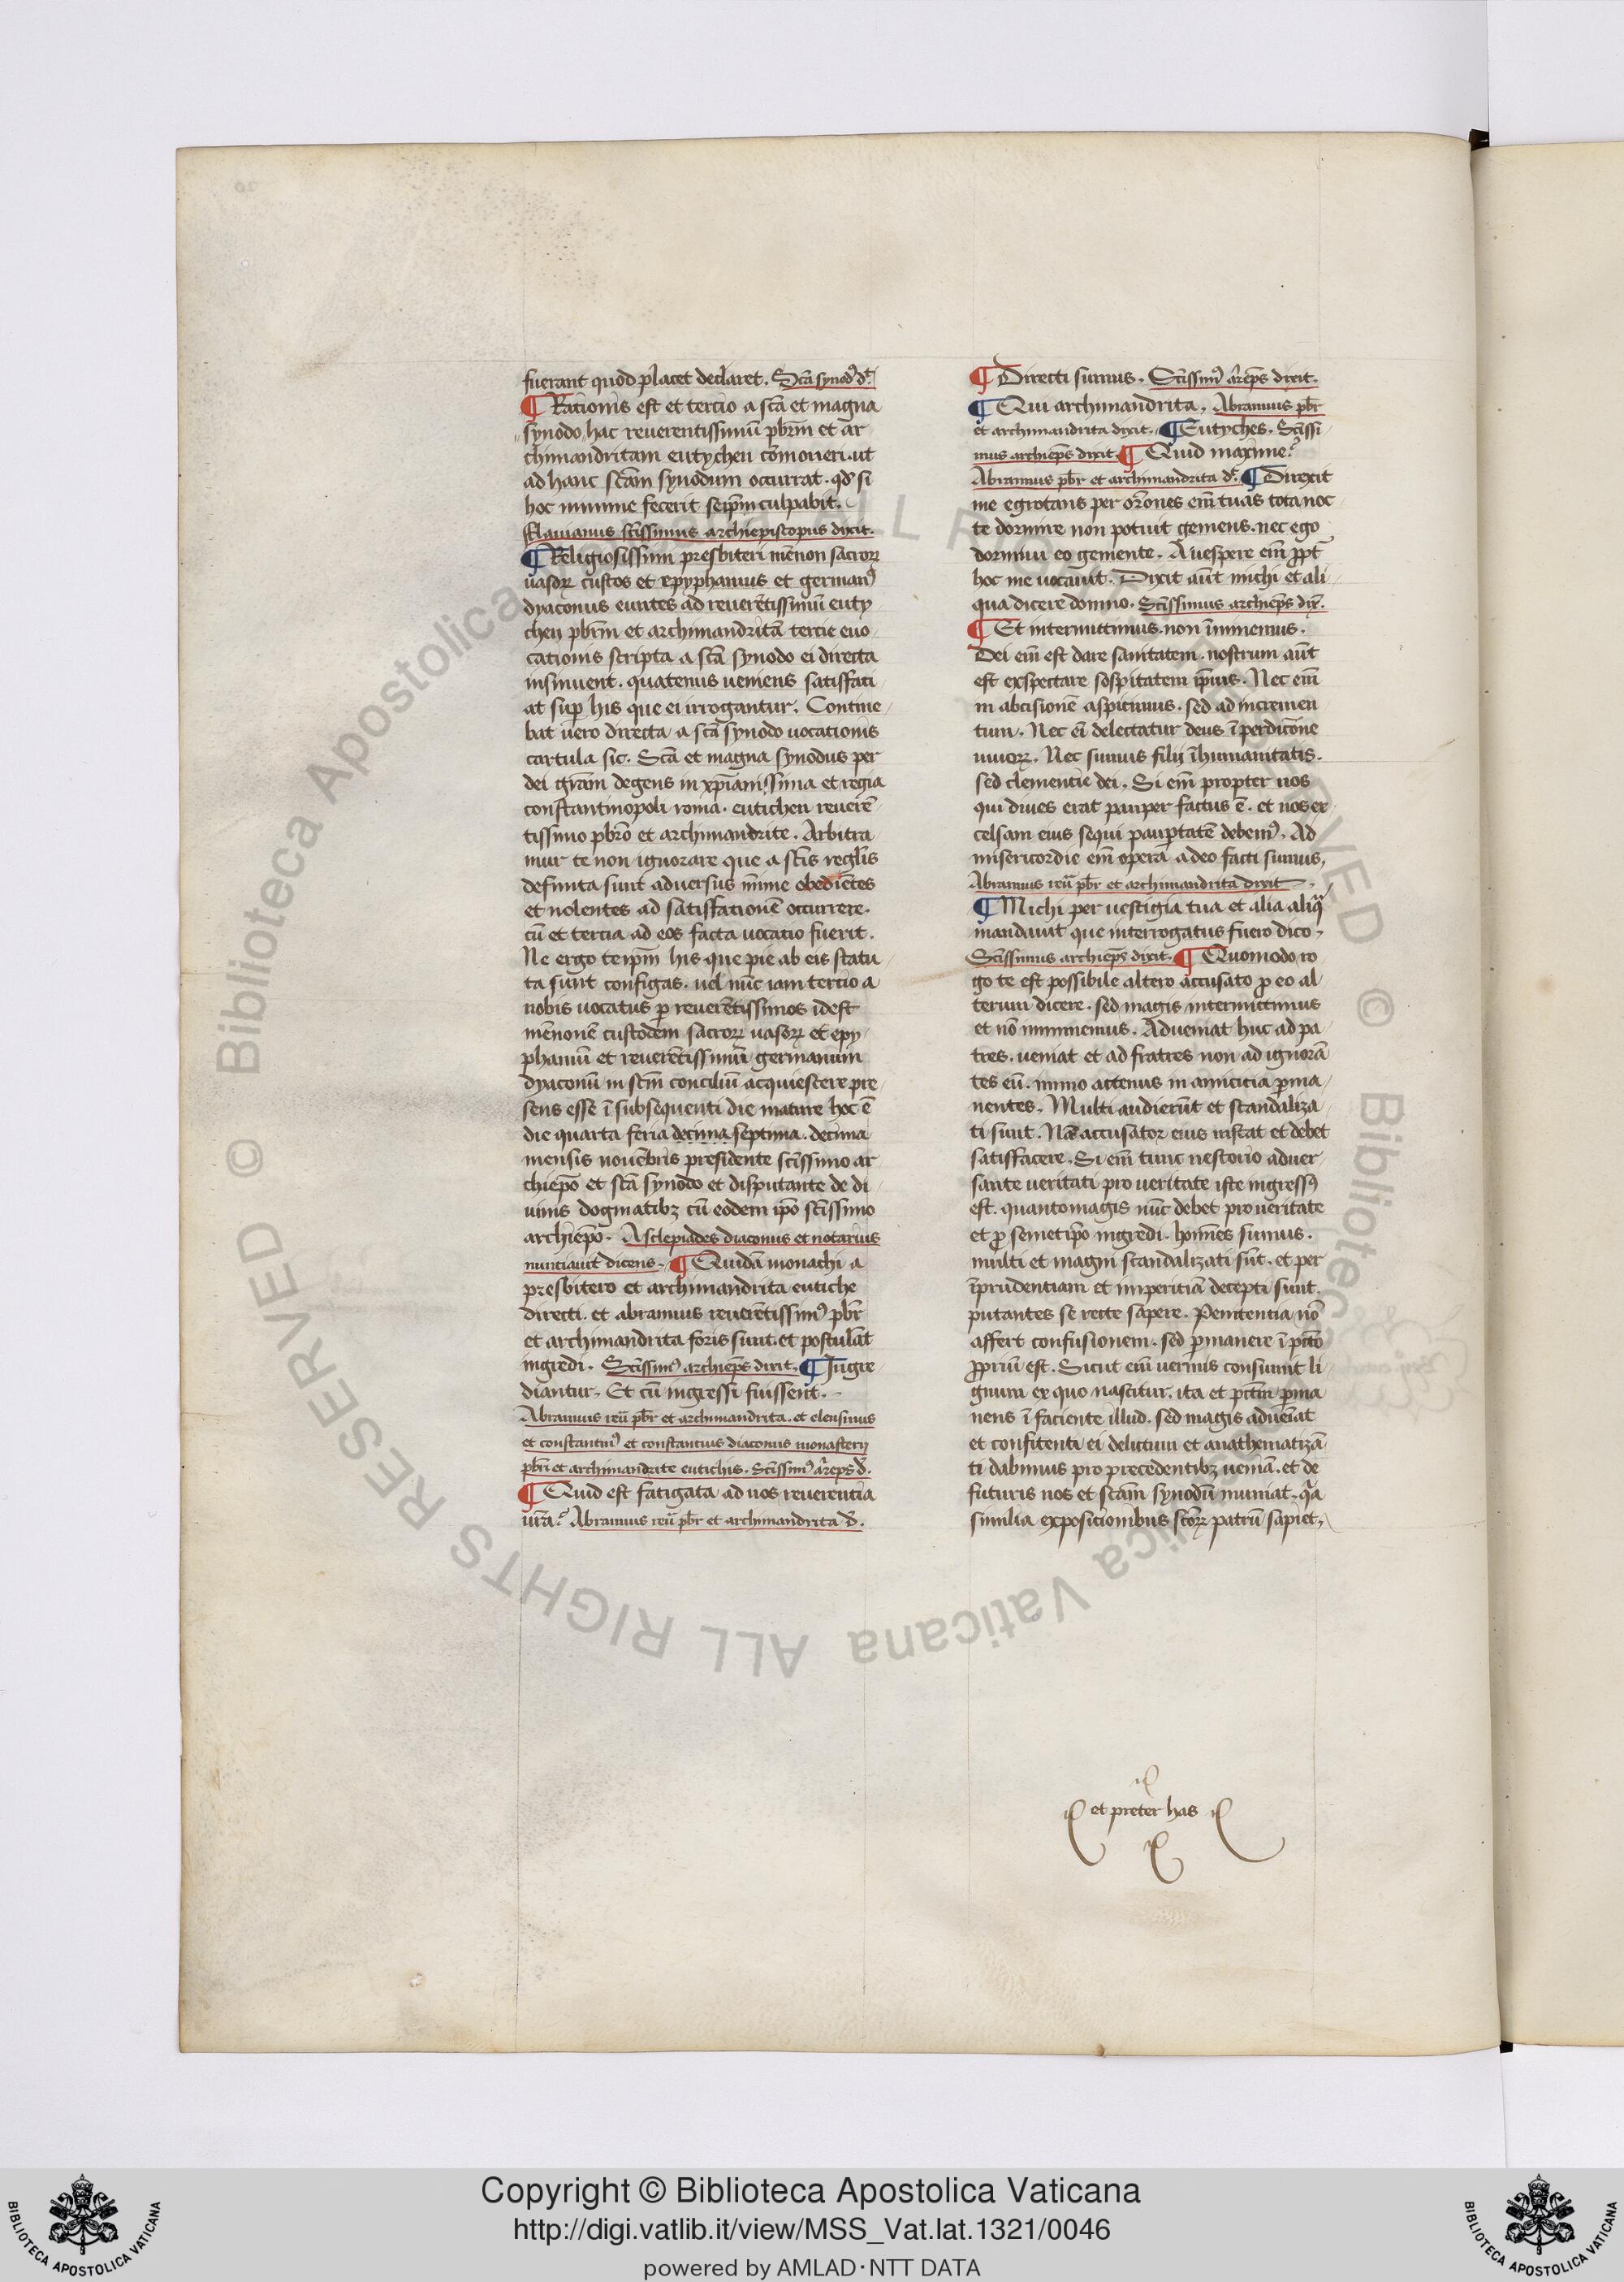 fuerant quod placet declaret. Scā synodꝰ d̄t.
¶ Rationis est et tercio a scā et magna
synodo hac reuerentissimū pb̄rm et ar
chimandritam eutychen cōmoneri. ut
ad hanc sc̄am synodum occurrat. qd̄ si
hoc minime fecerit seip̄m culpabit.
Flauianus sc̄issimus archiepiscopus dixit.
¶ Religiosissimi presbiteri mēnon sacroꝝ
uasoꝝ custos et epyphanius et germanꝰ
dyaconus euntes ad reuerētissimū euty
chen pb̄rm et archimandritā tercie euo
cationis scripta a scā synodo ei directa
insinuent. quatenus ueniens satisfaci
at suꝑ his que ei irrogantur. Contine
bat uero directa a scā synodo uocationis
cartula sic. Scā et magna synodus per
dei grām degens in xp̄ianissima et regia
constantinopoli roma. eutichen reuerē
tissimo pb̄ro et archimandrite. Arbitra
mur te non ignorare que a sc̄is regl̄is
definita sunt aduersus mīme obediētes
et nolentes ad satisfationē occurrere.
cū et tercia ad eos facta uocatio fuerit.
Ne ergo teip̄m his que pie ab eis statu
ta sunt configas. uel nūc iam tercio a
nobis uocatus ꝑ reuerētissimos idest
mēnonē custodem sacroꝝ uasoꝝ et epy
phaniū et reuerētissimū germanum
dyaconū in sc̄m conciliū acquiescere pre
sens esse ī subsequenti die mature hoc ē
die quarta feria decima septima. decima
mensis nouēbris presidente sc̄issimo ar
chiep̄o et scā synodo et disputante de di
uinis dogmatibꝫ cū eodem ip̄o sc̄issimo
archiep̄o. Asclepiades diaconus et notarius
nunciauit dicens. ¶ Quidā monachi a
presbitero et archimandrita eutiche
directi. et abramius reuerētissimꝰ pb̄r
et archimandrita foris sunt. et postulāt
ingredi. Sc̄issimꝰ archiep̄s dixit. ¶ Ingre
diantur. Et cū ingressi fuissent.
Abramius reū pb̄r et archimandrita. et eleusinus
et constantinꝰ et constantius diaconus monasterij
pb̄ri et archimandrite eutichis. Sc̄issimꝰ ar̄ep̄s d̄.
¶ Quid est fatigata ad nos reuerentia
ur̄a? Abramius reū pb̄r et archimandrita d̄.
¶ Directi sumus. Sc̄issimꝰ ar̄ep̄s dixit.
¶ Qui archimandrita. Abramius pb̄r
et archimandrita dixit. ¶ Eutyches. Sc̄issi
mus archiep̄s dixit. ¶ Quid maxime?
Abramius pb̄r et archimandrita d̄t. ¶ Direxit
me egrotans per or̄ones em̄ tuas tota noc
te dormire non potuit gemens. nec ego
dormiui eo gemente. A uespere em̄ ꝓpt̄
hoc me uocauit. Dixit aūt michi et ali
qua dicere domno. Sc̄issimus archiep̄s dix̄.
¶ Et intermittimus. non īminemus.
Dei em̄ est dare sanitatem. nostrum aūt
est exspectare sospitatem ip̄ius. Nec em̄
in abcisionē aspicimus. sed ad incremen
tum. Nec em̄ delectatur deus ī perditiōne
uiuoꝝ. Nec sumus filij īhumanitatis.
sed clementie dei. Si em̄ propter nos
qui diues erat pauper factus ē. et nos ex
celsam eius sequi pauꝑtatē debemꝰ. Ad
misericordie em̄ operā a deo facti sumus,
Abramius reū pb̄r et archimandrita dixit
¶ Michi per uestigia tua et alia aliq̄
mandauit que interrogatus fuero dico.
Sc̄issimus archiep̄s dixit. ¶ Quomodo ro
go te est possibile altero accusato ꝓ eo al
terum dicere. sed magis intermittimus
et nō imminemus. Adueniat huc ad pa
tres. ueniat et ad fratres non ad ignorā
tes eū. immo actenus in amicicia ꝑma
nentes. Multi audierūt et scandaliza
ti sunt. Nā accusator eius instat et debet
satisfacere. Si em̄ tunc nestorio aduer
sante ueritati pro ueritate iste ingressꝰ
est. quantomagis nūc debet pro ueritate
et ꝓ semetip̄o ingredi. hom̄es sumus.
multi et magni scandalizati sūt. et per
īprudentiam et imperitiā decepti sunt.
putantes se recte sapere. Penitentia nō
affert confusionem. sed ꝑmanere ī pctō
ꝓpriū est. Sicut em̄ uermis consumit li
gnum ex quo nascitur. ita et pctm̄ ꝑma
nens ī faciente illud. sed magis adueīat
et confitenti ei delictum et anathematizā
ti dabimus pro precedentibꝫ ueniā. et de
futuris nos et sc̄am synodū muniat. qa
similia expositionibus sc̄oꝝ patrū sapiet,
et preter has
Copyright © Biblioteca Apostolica Vaticana
http://digi.vatlib.it/view/MSS_Vat.lat.1321/0046
powered by AMLAD·NTT DATA
BIBLIOTECA APOSTOLICA VATICANA
BIBLIOTECA APOSTOLICA VATICANA
© Biblioteca Apostolica Vaticana ALL RIGHTS RESERVED